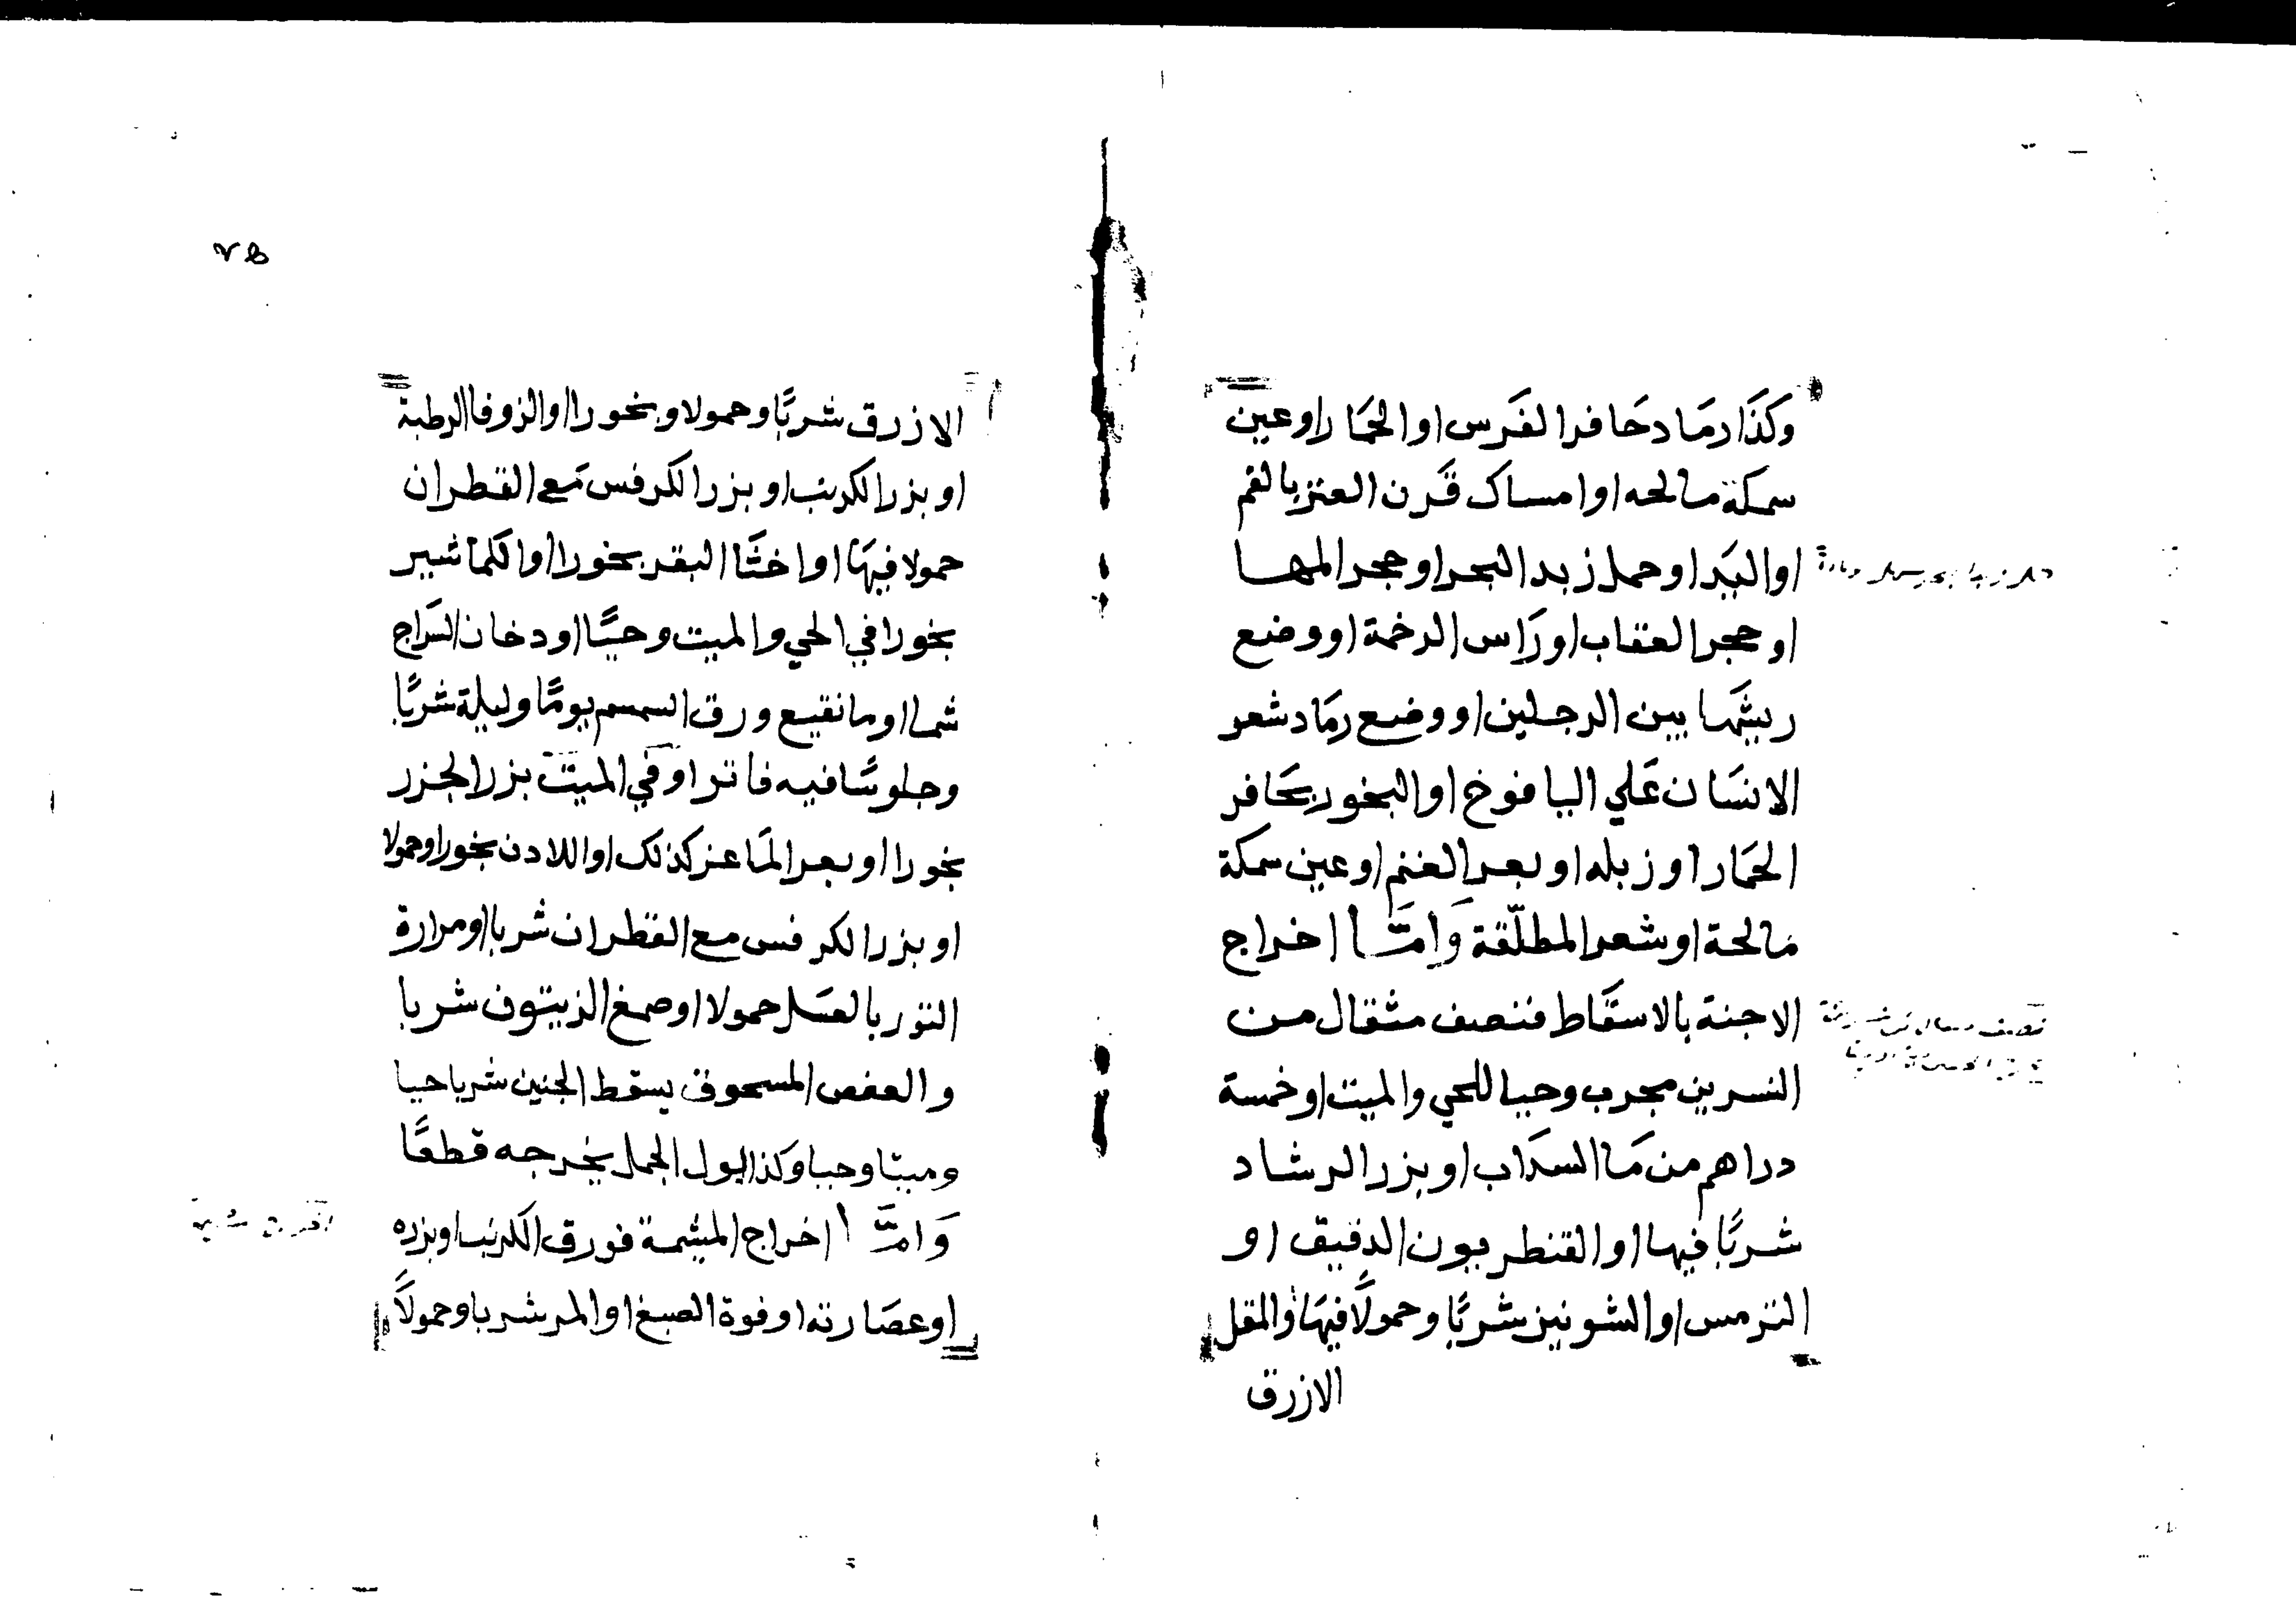 وكذا رماد حافر الفرس او الحمار او عين
سمكة مالحه او امساك قرن العنز بالفم
او اليد او حمل زبد البحر او حجر المها
او حجر العقاب او راس الرخمة او وضع
ريشها بين الرجلين او وضع رماد شعر
الانسان علي اليافوخ او البخور بحافر
الحمار او زبله او بعر الغنم او عين سمكة
مالحة او شعر المطلّقة وامّا اخراج
الاجنة بالاسقاط فنصف مثقال من
النسرين مجرب وحيا للحي والميت او خمسة
دراهم من ما السداب او بزر الرشاد
شربًا فيها او القنطريون الدقيق او
الترمس او الشونيز شربًا وحمولًا فيها والمقل
الازرق
٧٥
الازرق شربًا وحمولا وبخورا او الزوفا الرطبة
او بزر الكرنب او بزر الكرفس مع القطران
حمولا فيها او اخثا البقر بخورا او الكماشير
بخورا في الحي والميت وحيًّا او دخان السراج
شما او ما نقيع ورق السمسم يومًا وليلة شربًا
وجلوسًا فيه فاترا وفي الميت بزر الجزر
بخورا او بعر الماعز كذلك او اللادن بخورا وحمولا
او بزر الكرفس مع القطران شربا او مرارة
الثور بالعسل حمولا او صمغ الزيتون شربا
والعفص المسحوق يسقط الجنين شربا حيا
وميتا وحيا وكذا بول الجمل يخرجه قطعًا
وامّا اخراج المشيمة فورق الكرنب او بزره
او عصارته او فوة الصبغ او المر شربا وحمولًا